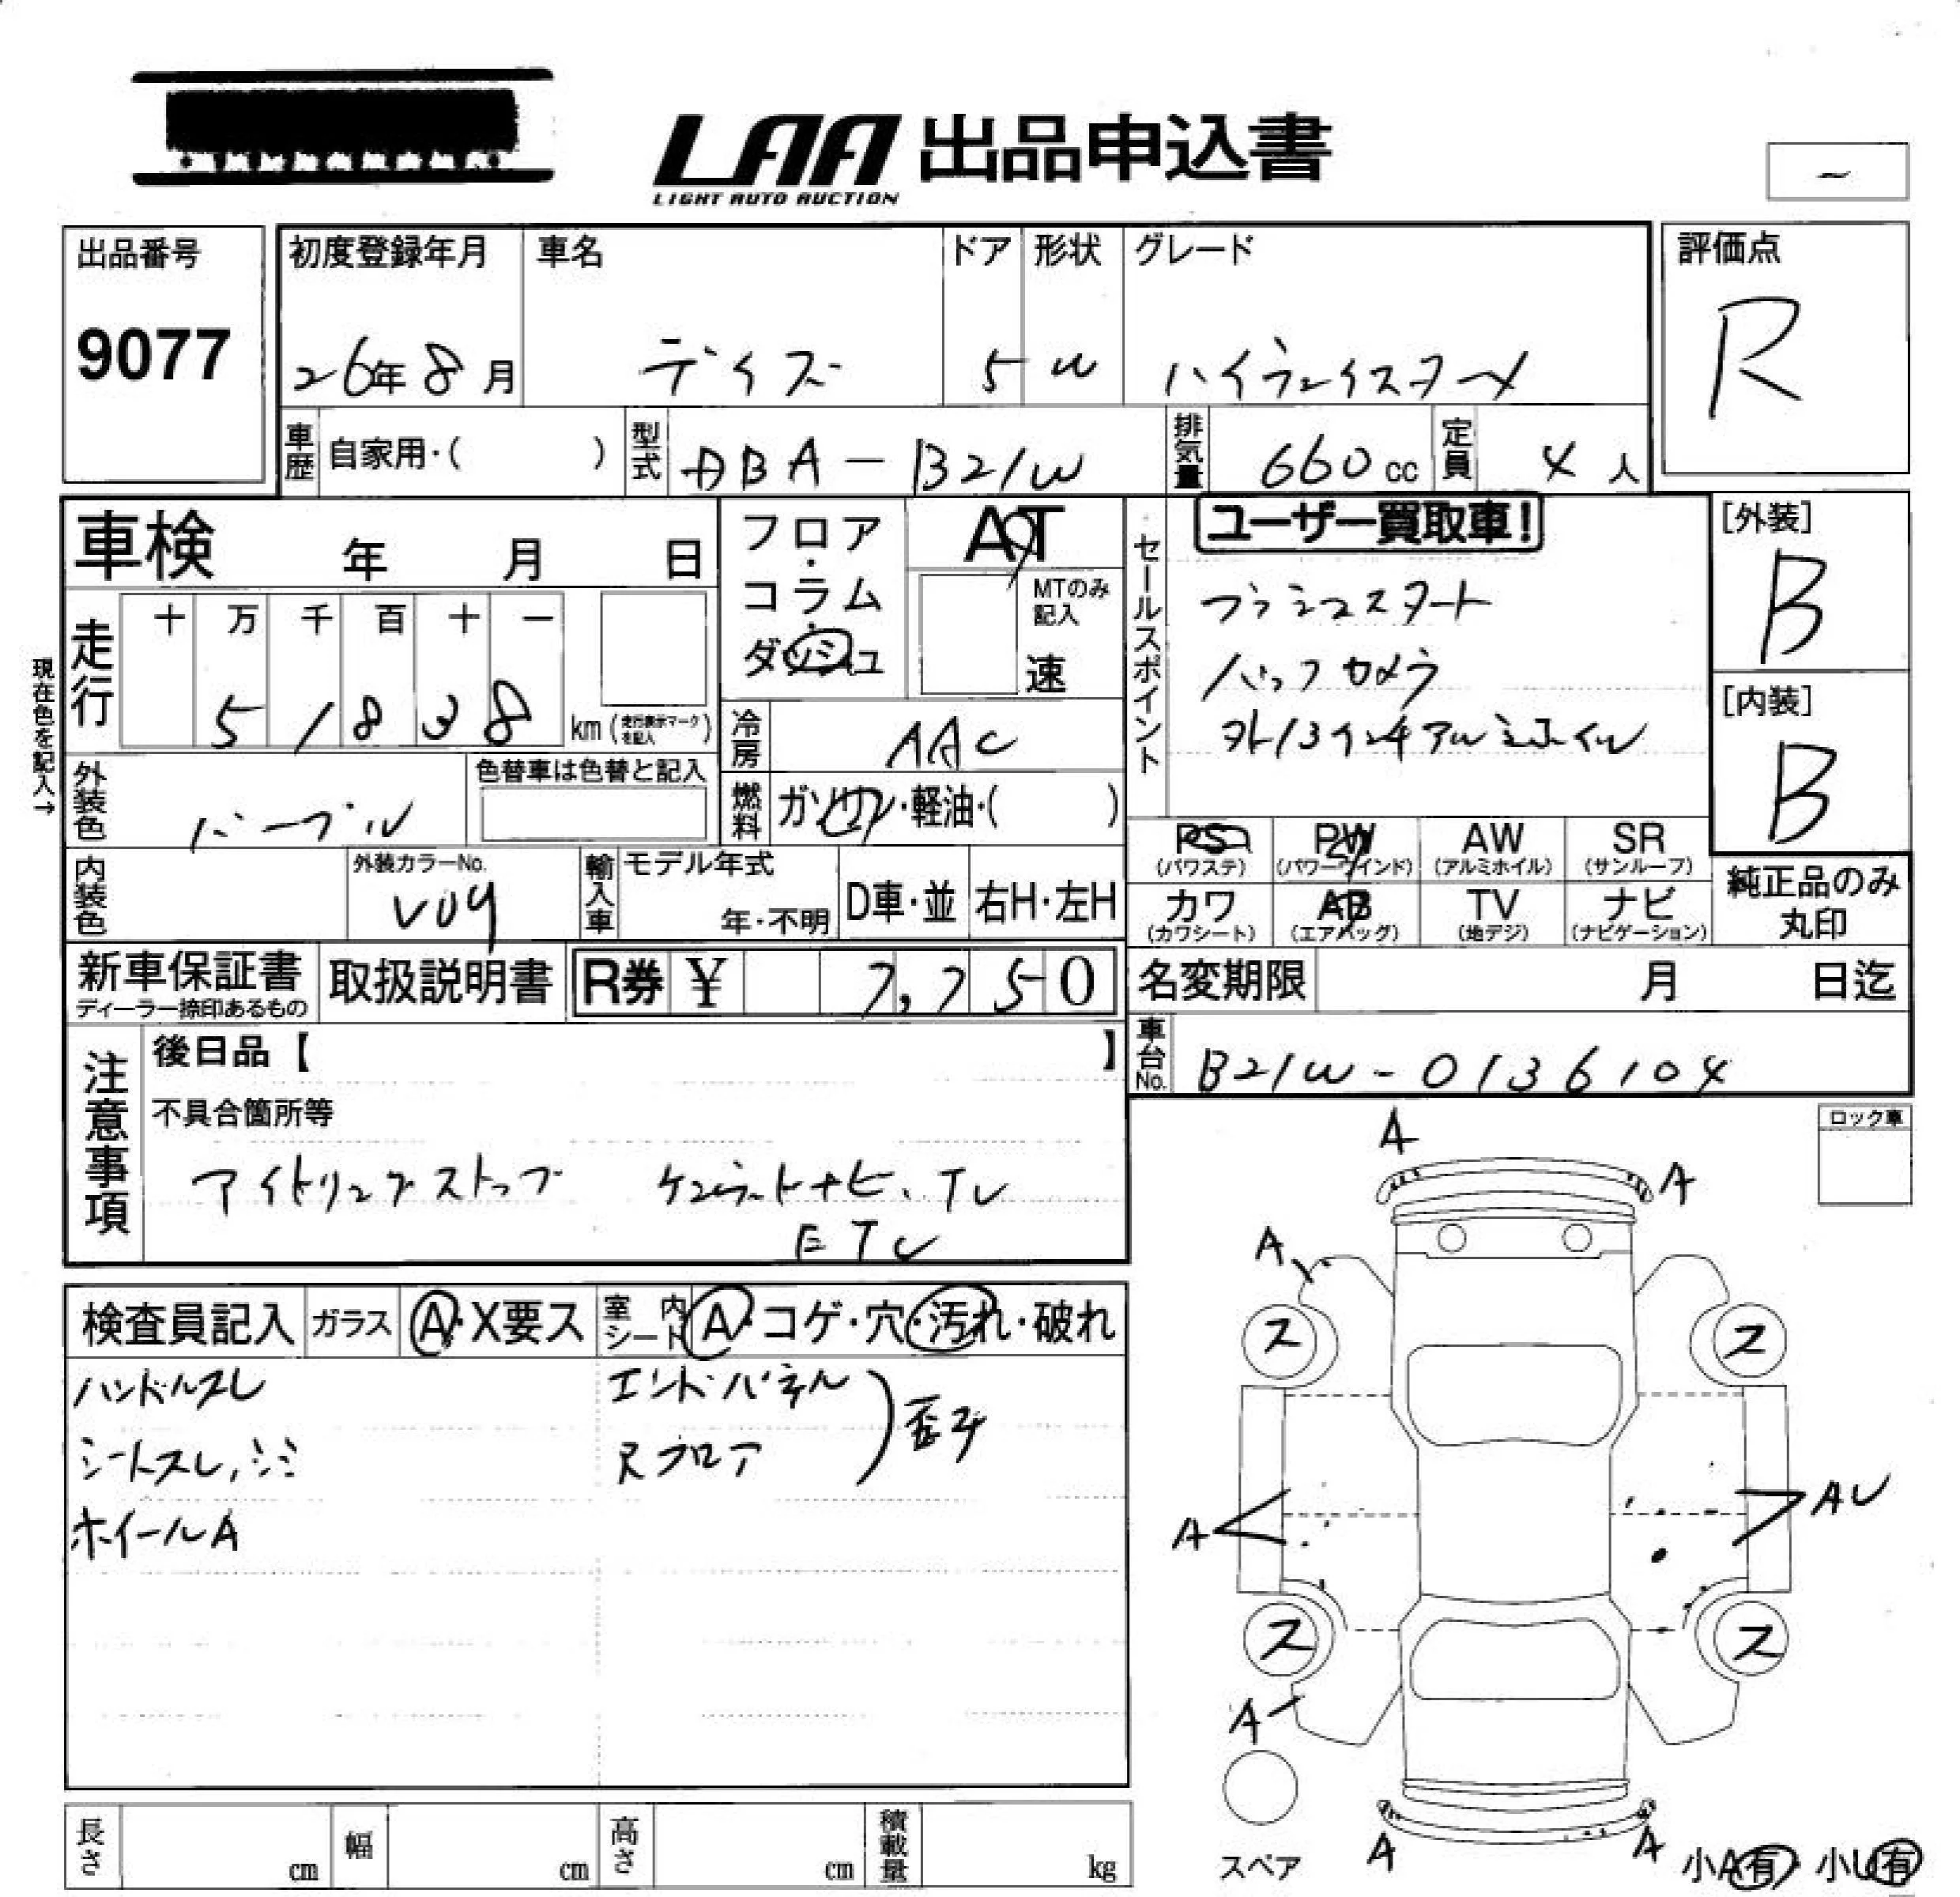 LAA 出品申込書
LIGHT AUTO AUCTION
~
出品番号
9077
初度登録年月
26年8月
車名
デイズ
ドア
5
形状
W
グレード
ハイウェイスター
評価点
R
車歴
自家用・( )
型式
DBA-B21W
排気量
660cc
定員
4人
車検 年 月 日
フロア・コラム・ダッシュ
AT
MTのみ記入
速
セールスポイント
ユーザー買取車!
プッシュスタート
バックカメラ
外13インチアルミホイル
[外装]
B
[内装]
B
現在色を記入→
走行
十 万 千 百 十 一
5 1 8 3 8
km (走行表示マークを記入)
冷房
AAC
外装色
パープル
色替車は色替と記入
燃料
ガソリン・軽油・( )
PS
(パワステ)
PW
(パワーウインド)
AW
(アルミホイル)
SR
(サンルーフ)
カワ
(カワシート)
AB
(エアバッグ)
TV
(地デジ)
ナビ
(ナビゲーション)
純正品のみ
丸印
内装色
外装カラーNo.
V09
輸入車
モデル年式
年・不明
D車・並
右H・左H
新車保証書
ディーラー捺印あるもの
取扱説明書
R券 ¥ 7,750
名変期限 月 日迄
車台No.
B21W-0136104
注意事項
後日品【 】
不具合箇所等
アイドリングストップ ケンウッドナビ、TV
ETC
ロック車
検査員記入
ガラス
A・X要ス
室内シート
A・コゲ・穴・汚れ・破れ
ハンドルスレ
シートスレ、シミ
ホイールA
エンドパネル
Rフロア
歪み
A
A
A
ス
ス
A
AU
ス
ス
A
A
A
スペア
小A有・小U有
長さ cm
幅 cm
高さ cm
積載量 kg